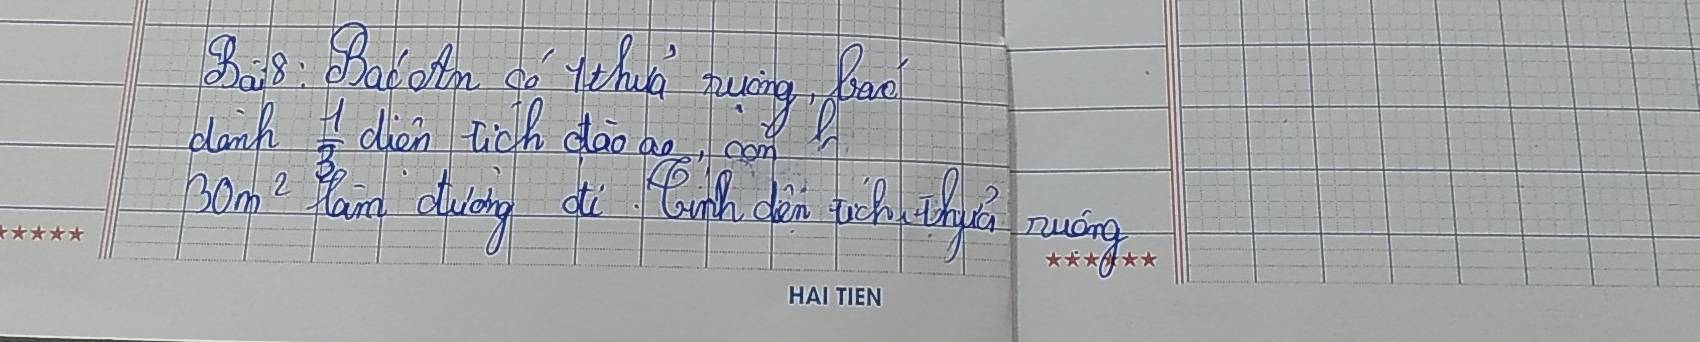 Bài 8: Bác An có 1 thửa ruộng, bác
dành 1/3 diện tích đào ao, còn
30m² làm đường đi. Tính diện tích thửa ruộng
HAI TIEN